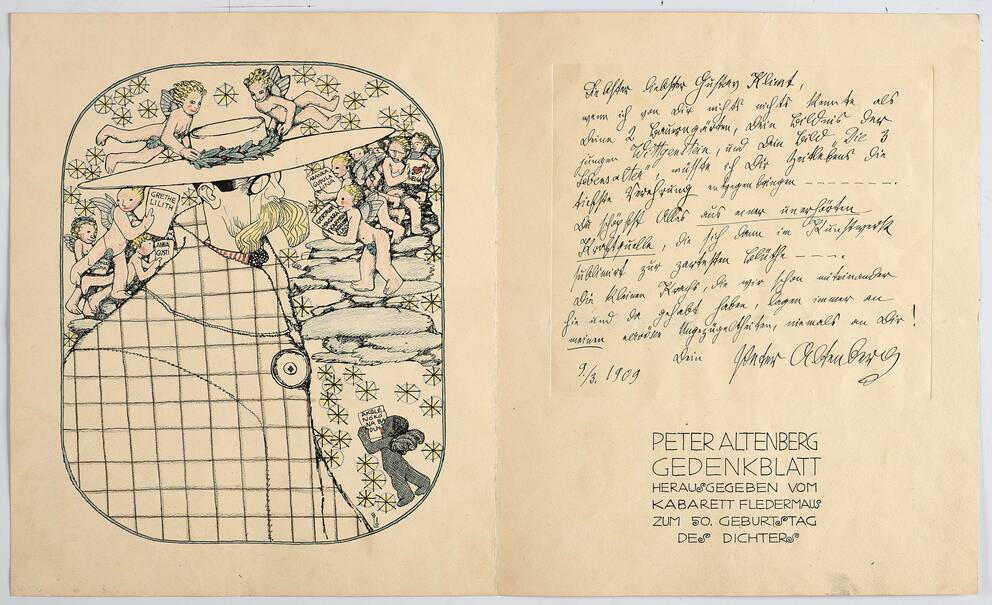 GRETHE
LILITH
ANNA
GUSTI
NINA
liebster Gustav Klimt,
wenn ich von Dir nichts nichts kennte als
Deine 2 Bauerngärten, Dein Bildnis der
jungen Wittgenstein, und Dein Bild „Die 3
Lebensalter“ müsste ich Dir Zeitlebens die
tiefste Verehrung entgegenbringen -------.
Du schöpfst Alles aus einer unerhörten
Kraftquelle, die sich dann im Kunstwerke
sublimirt zur zartesten Blüthe ----.
Die kleinen Krachs, die wir schon miteinander
hie und da gehabt haben, lagen immer an
meinen Ungezügeltheiten, niemals an Dir!
Dein Peter Altenberg
9/3. 1909
PETER ALTENBERG
GEDENKBLATT
HERAUSGEGEBEN VOM
KABARETT FLEDERMAUS
ZUM 50. GEBURTSTAG
DES DICHTERS